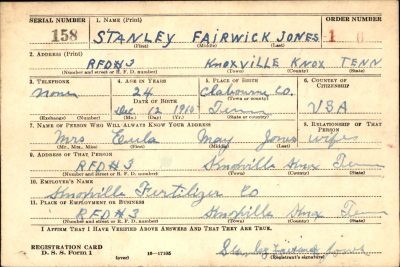 SERIAL NUMBER 1. NAME (Print) ORDER NUMBER
158 STANLEY FAIRWICK JONES 1
(First) (Middle) (Last)
2. ADDRESS (Print)
RFD#3 KNOXVILLE KNOX TENN
(Number and street or R. F. D. number) (Town) (County) (State)
3. TELEPHONE 4. AGE IN YEARS 5. PLACE OF BIRTH 6. COUNTRY OF CITIZENSHIP
none 24 Claibourne Co.
DATE OF BIRTH (Town or county)
Dec 12 1915 Tenn USA
(Exchange) (Number) (Mo.) (Day) (Yr.) (State or country)
7. NAME OF PERSON WHO WILL ALWAYS KNOW YOUR ADDRESS 8. RELATIONSHIP OF THAT PERSON
Mrs Eula May Jones wife
(Mr., Mrs., Miss) (First) (Middle) (Last)
9. ADDRESS OF THAT PERSON
RFD#3 Knoxville Knox Tenn
(Number and street or R. F. D. number) (Town) (County) (State)
10. EMPLOYER'S NAME
Knoxville Fertilizer Co
11. PLACE OF EMPLOYMENT OR BUSINESS
RFD#3 Knoxville Knox Tenn
(Number and street or R. F. D. number) (Town) (County) (State)
I AFFIRM THAT I HAVE VERIFIED ABOVE ANSWERS AND THAT THEY ARE TRUE.
REGISTRATION CARD
D. S. S. Form 1 (over) 16—17105 Stanley Fairwick Jones
(Registrant's signature)